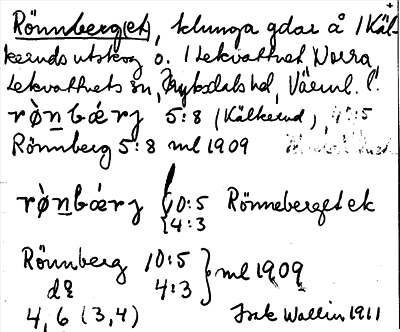 Rönnberg(et), klunga gdar å 1 Käl-
keruds utskog o. 1 Lekvattnet Norra,
Lekvattnets sn, Fryksdals hd, Värml. l.
rò̷nbǽrj 5:8 (Kälkerud),
Rönnberg 5:8 ml 1909
rò̷nbǽrj {10:5 Rönneberget ek
{4:3
Rönnberg 10:5 } ml 1909
d:o 4:3
4, 6 (3, 4) Frik Wallin 1911